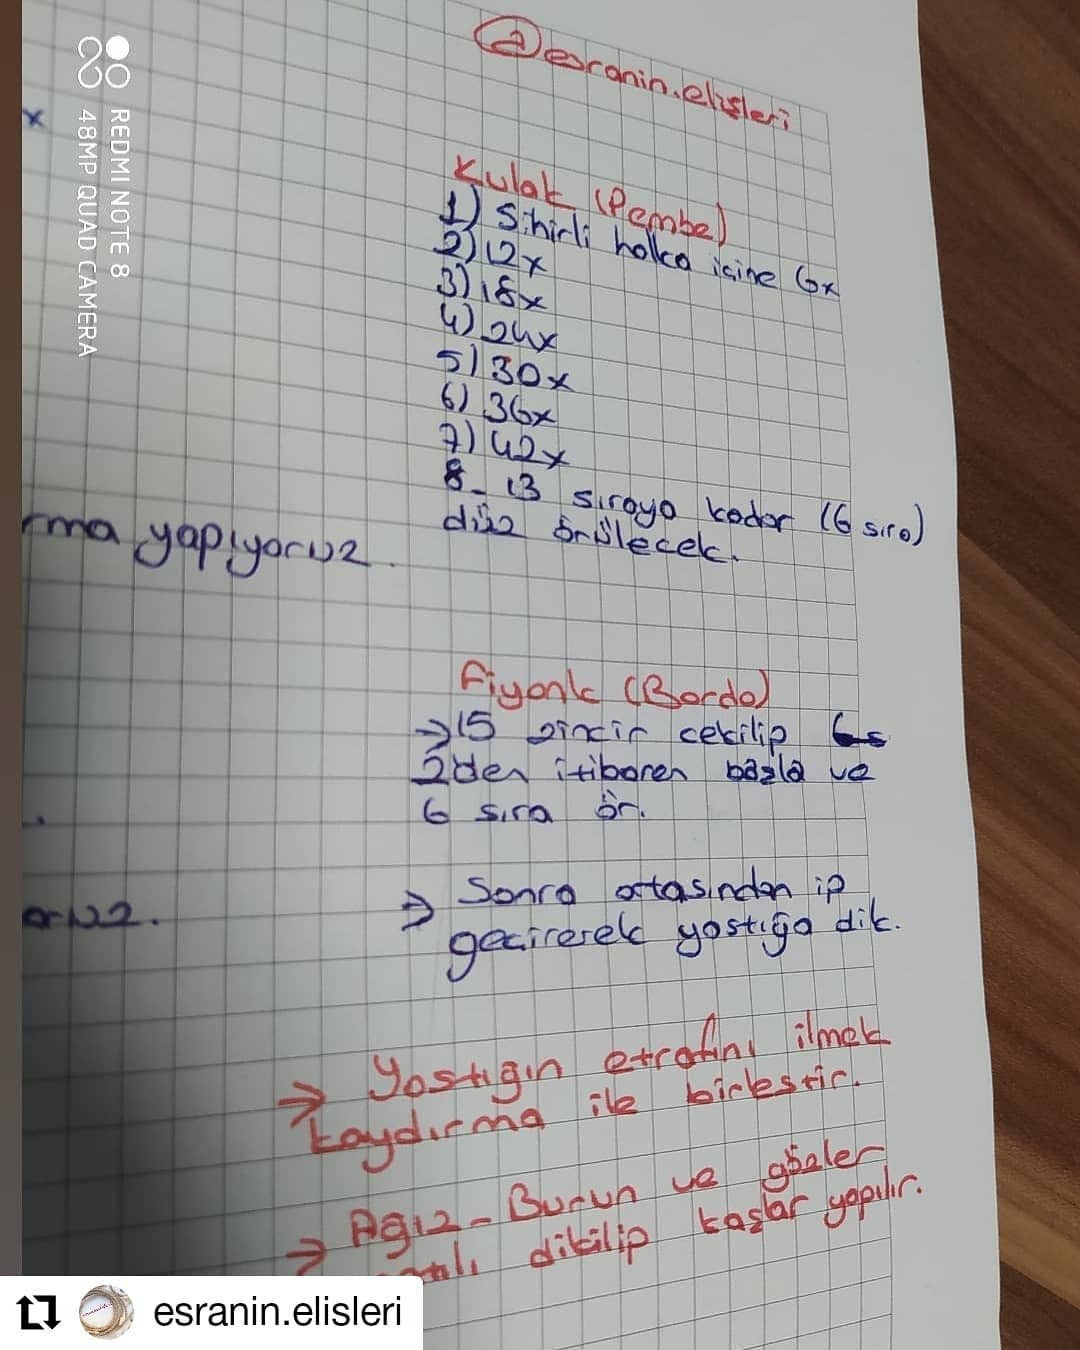 REDMI NOTE 8
48MP QUAD CAMERA
@esranin.elişleri
x
Kulak (Pembe)
1) Sihirli halka içine 6x
2) 12x
3) 18x
4) 24x
5) 30x
6) 36x
7) 42x
8_13 sıraya kadar (6 sıra)
düz örülecek.
rma yapıyoruz.
Fiyonk (Bordo)
→15 zincir cekilip
2den itibaren başla ve
6 sıra ör.
→ Sonra ortasından ip
geçirerek yastığa dik.
oruz.
→ Yastığın etrafını ilmek
kaydırma ile birleştir.
→ Ağız - Burun ve gözler
dikilip kaşlar yapılır.
esranin.elisleri